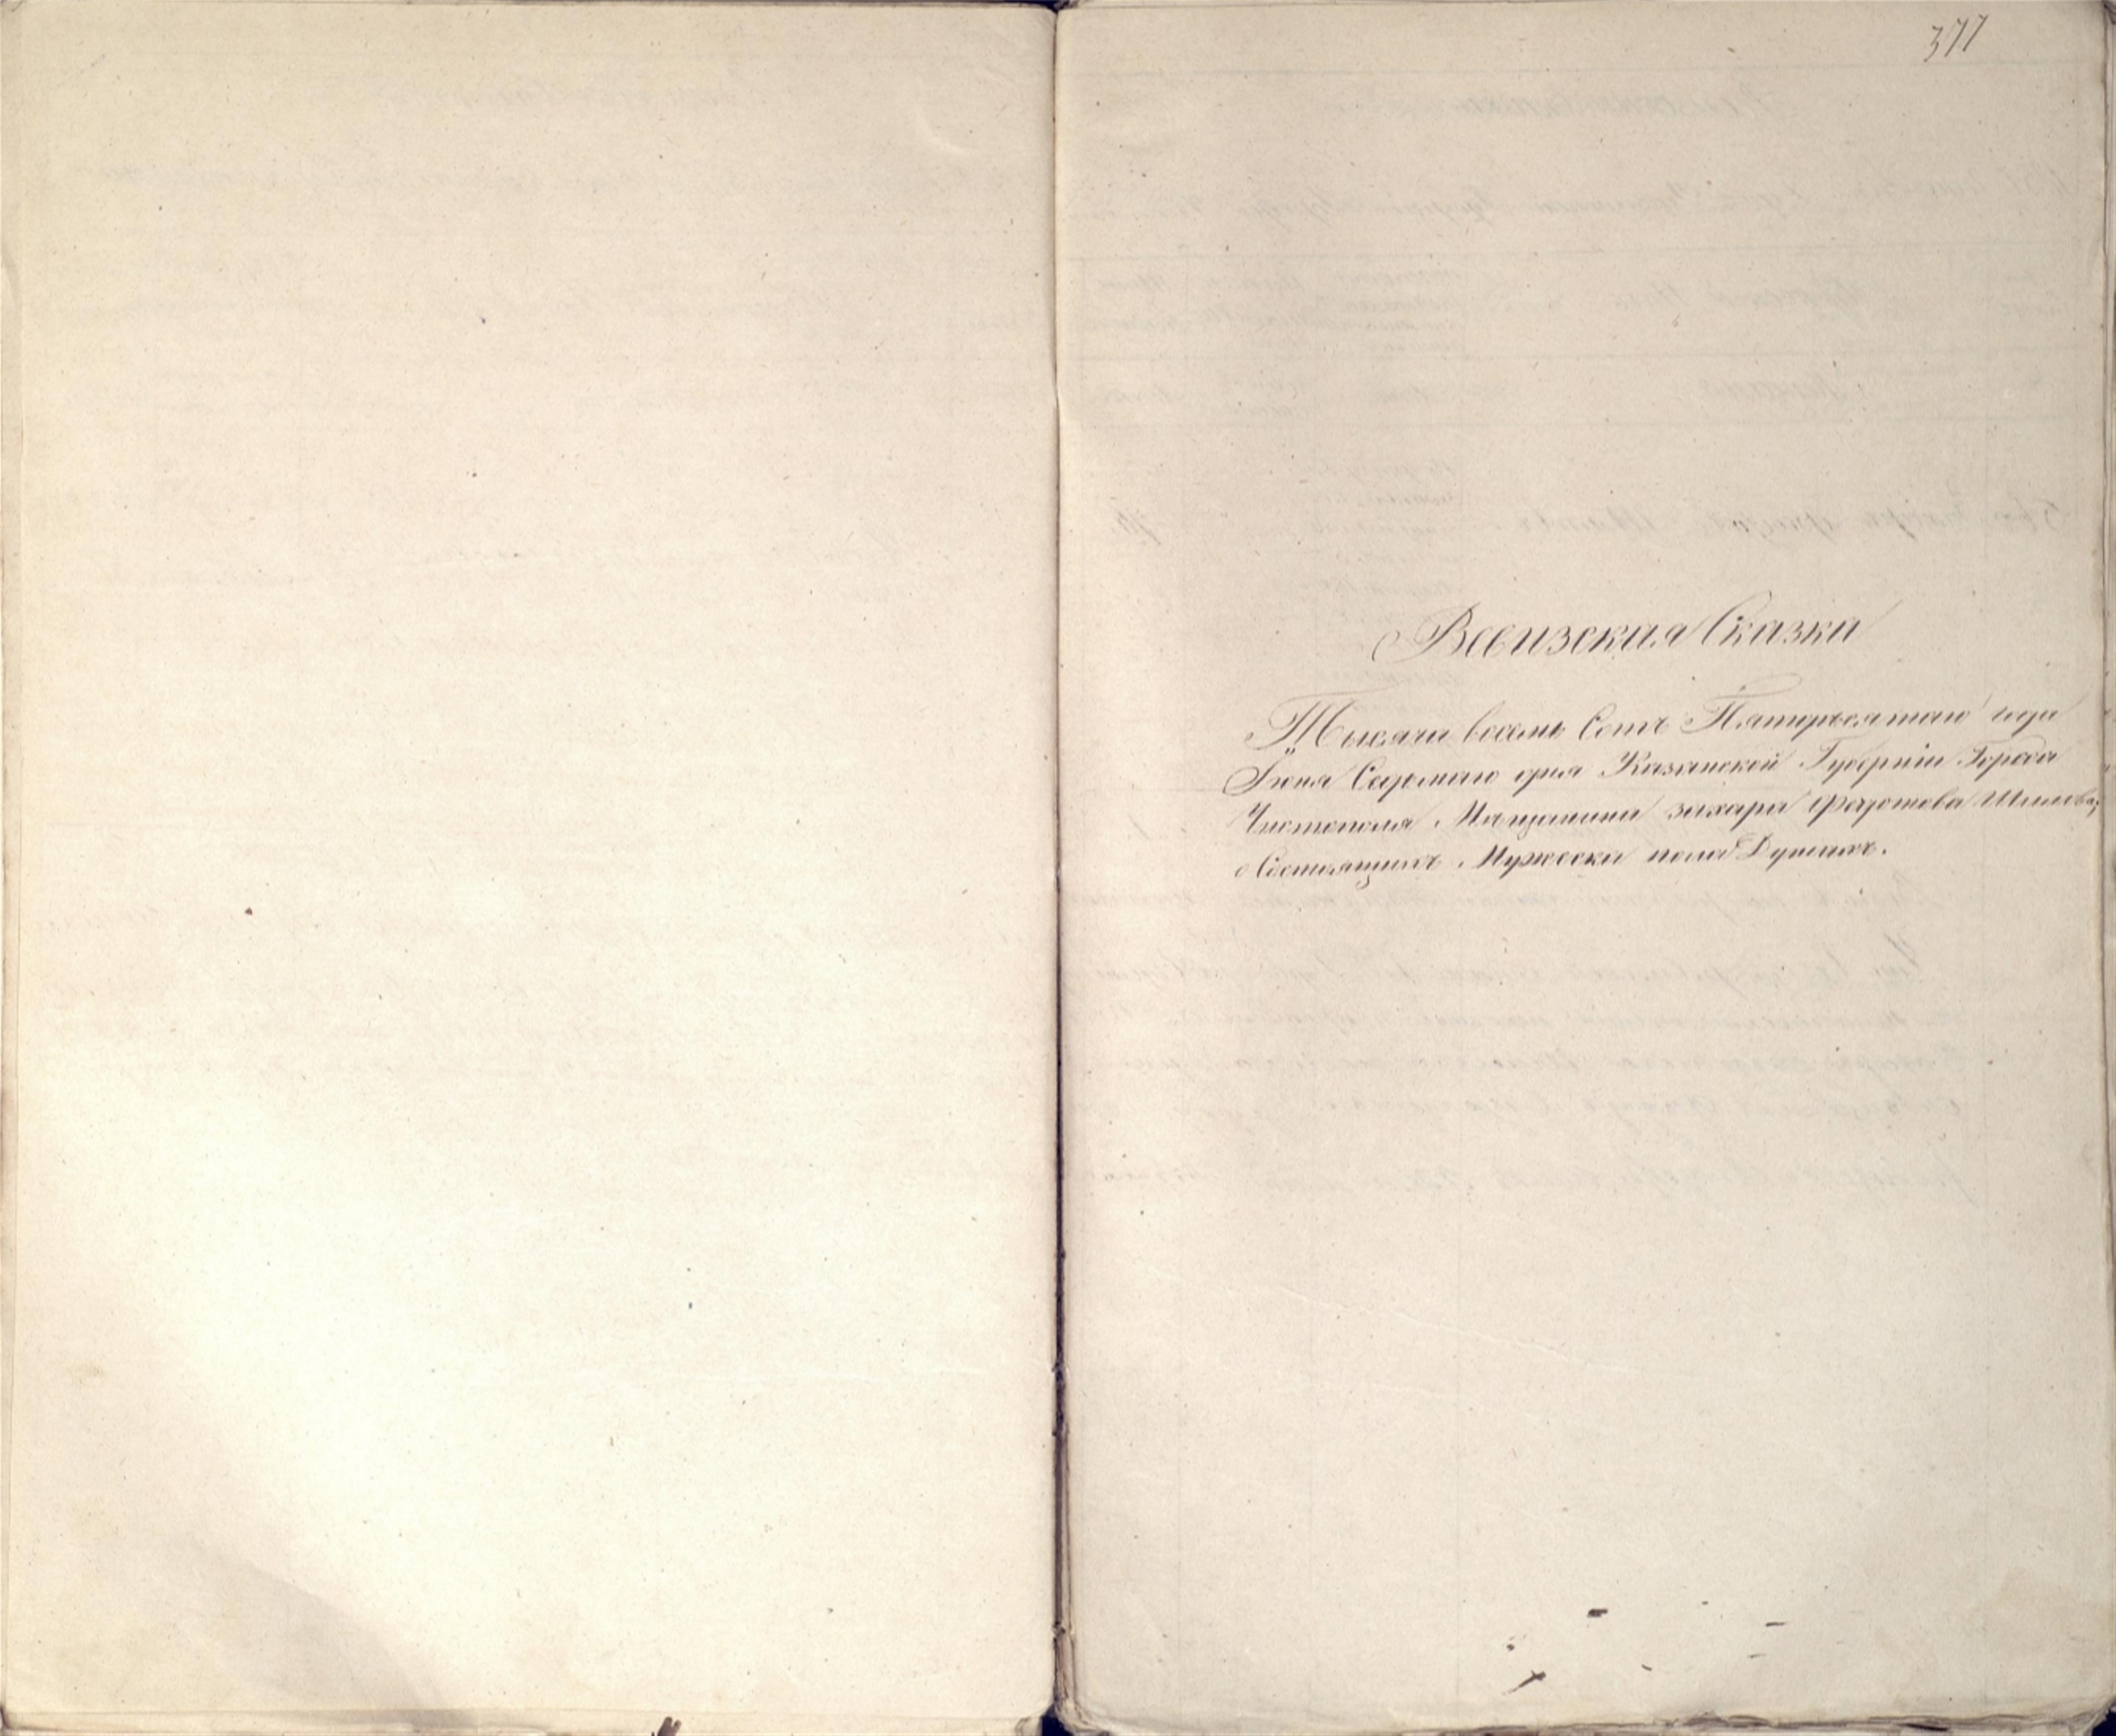 377
Ревизская Сказка
Тысяча восемь Сотъ Пятидесятаго года
Іюня Седьмаго дня Казанской Губерніи Города
Чистополя Мещанина захара федотова
о Состоящихъ Мужеска пола Душахъ.